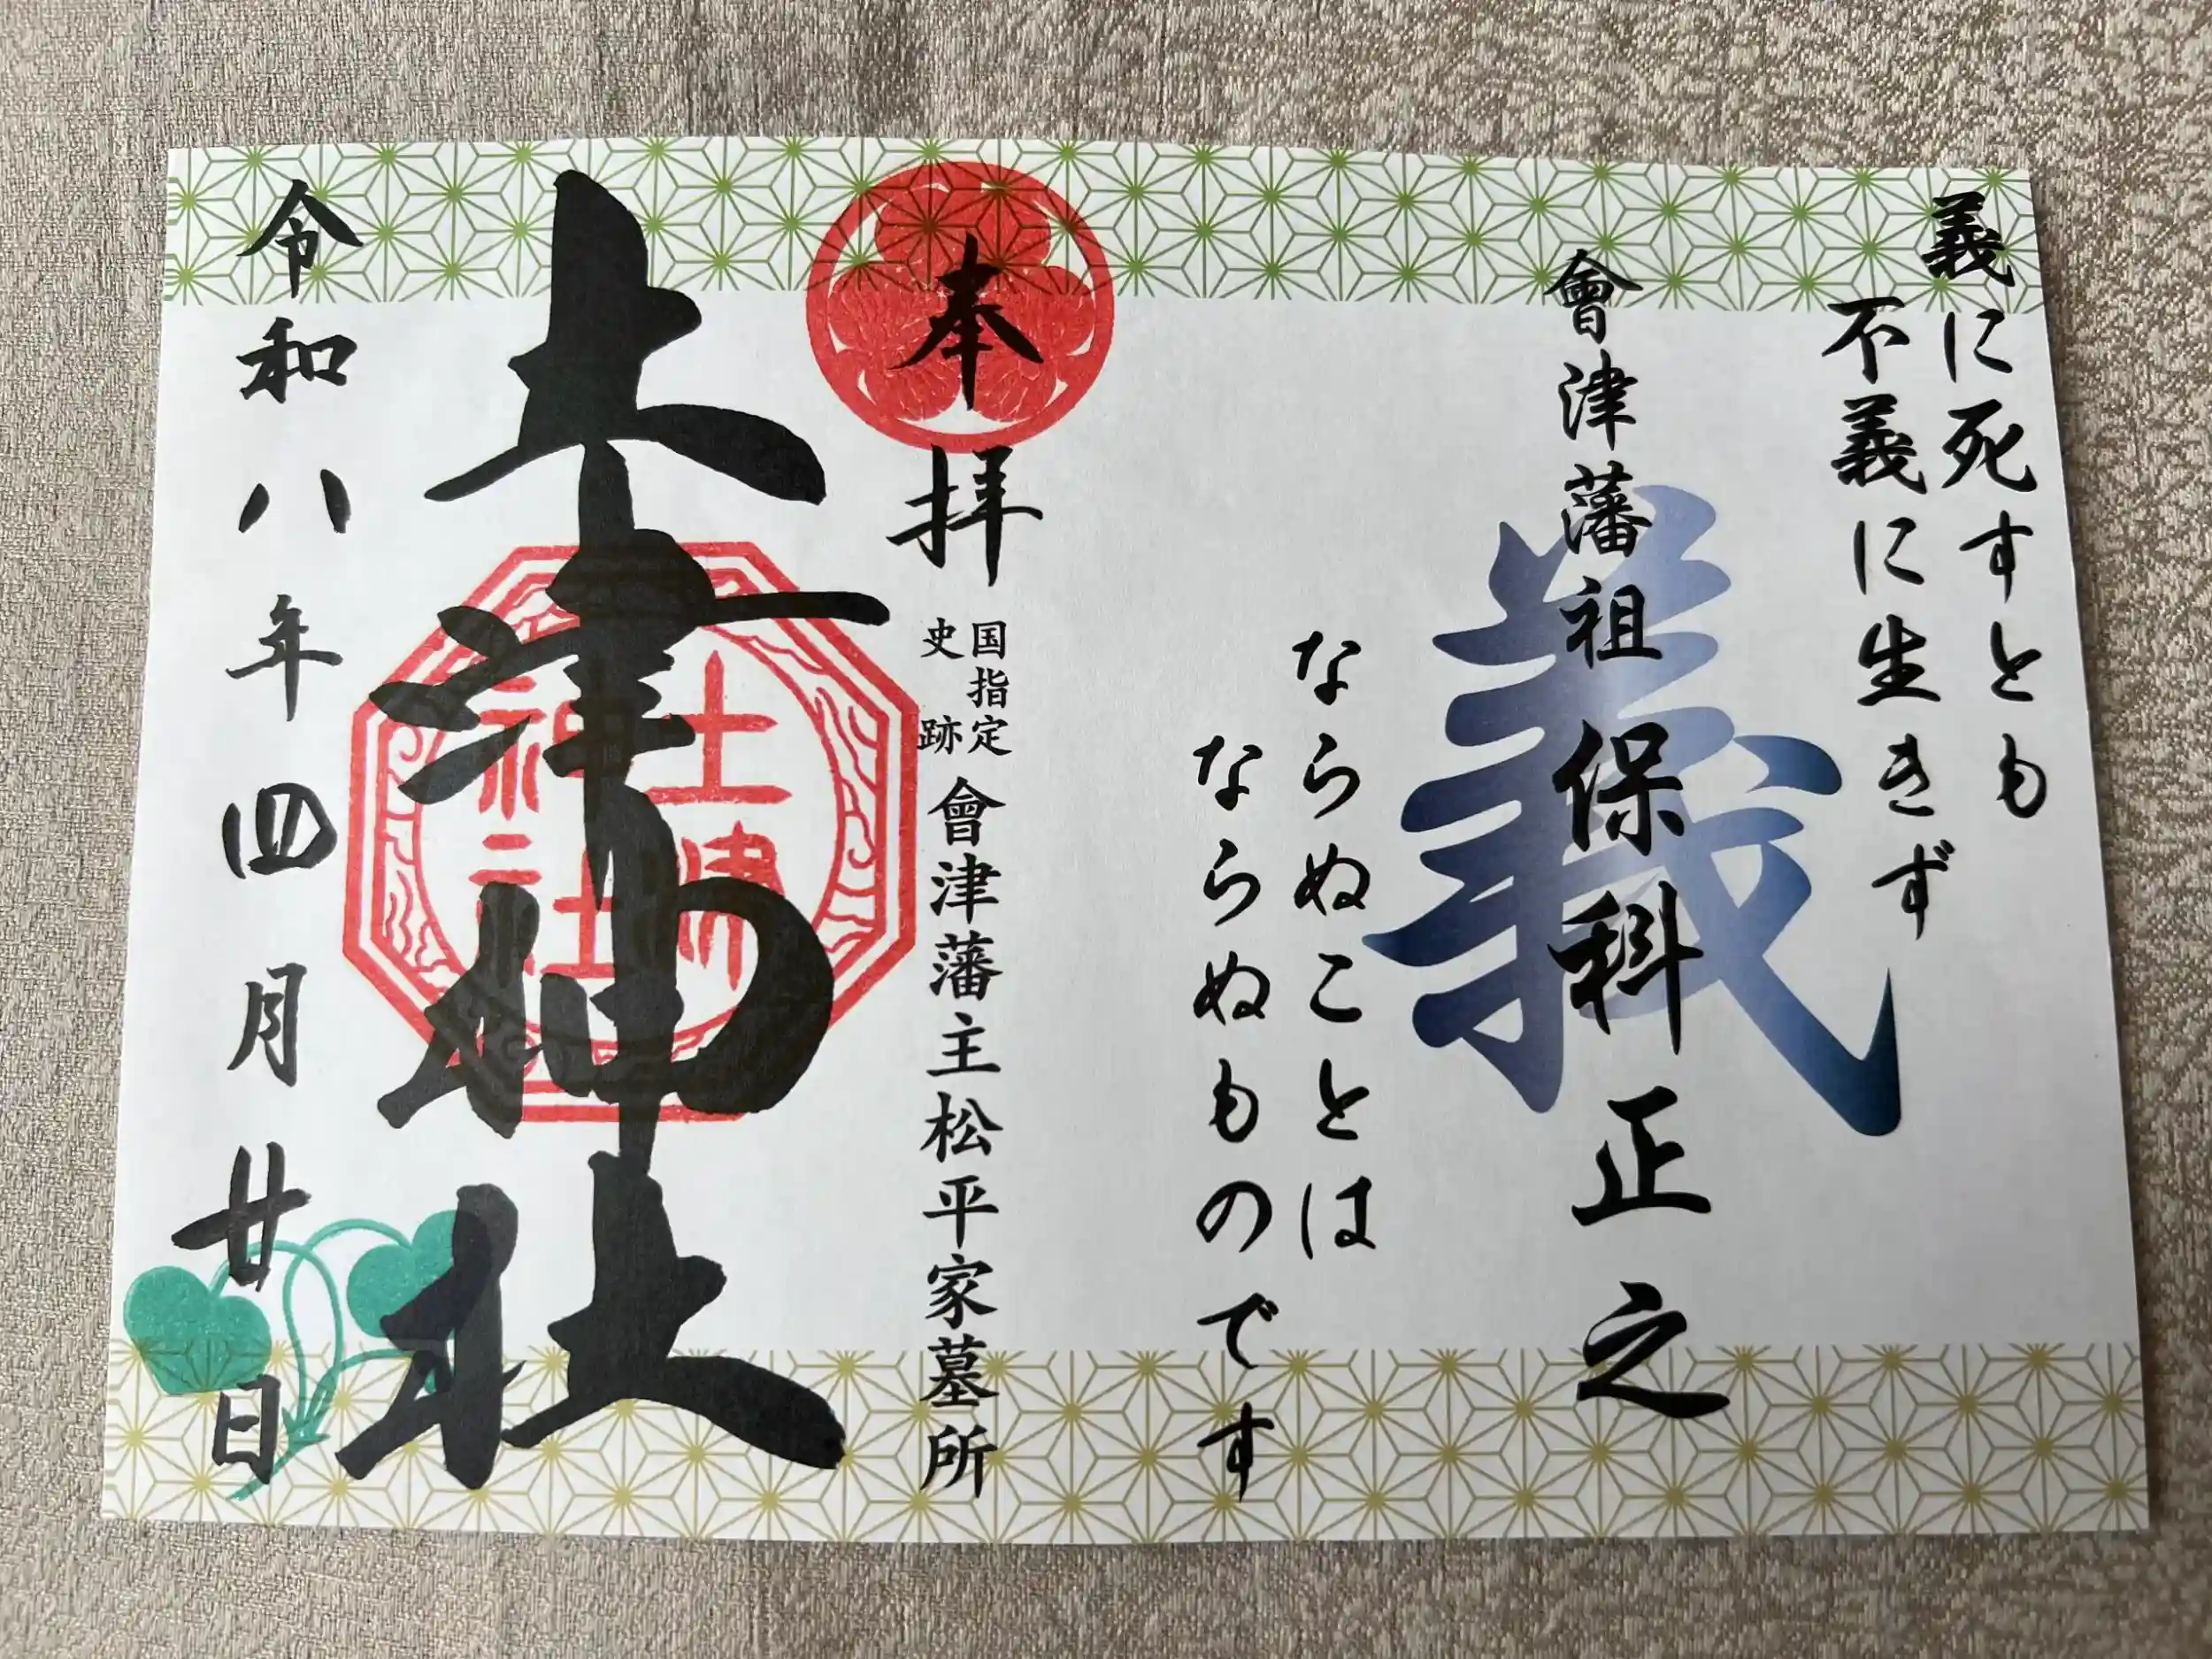 義に死すとも
不義に生きず
義
會津藩祖 保科正之
ならぬことは
ならぬものです
奉拝
国指定
史跡
會津藩主松平家墓所
土津神社
土津
神社
令和八年四月廿日